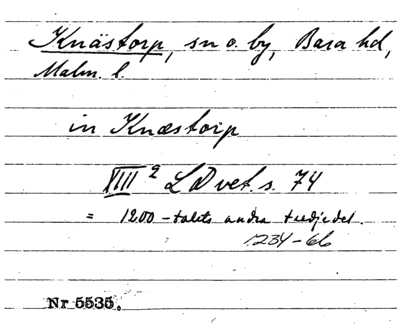 Knästorp, sn o. by, Bara hd,
Malm. l.
in Knæstorp
XIII 2 LDvet. s. 74
= 1200-talets andra tredjedel.
1234-66
Nr 5535.